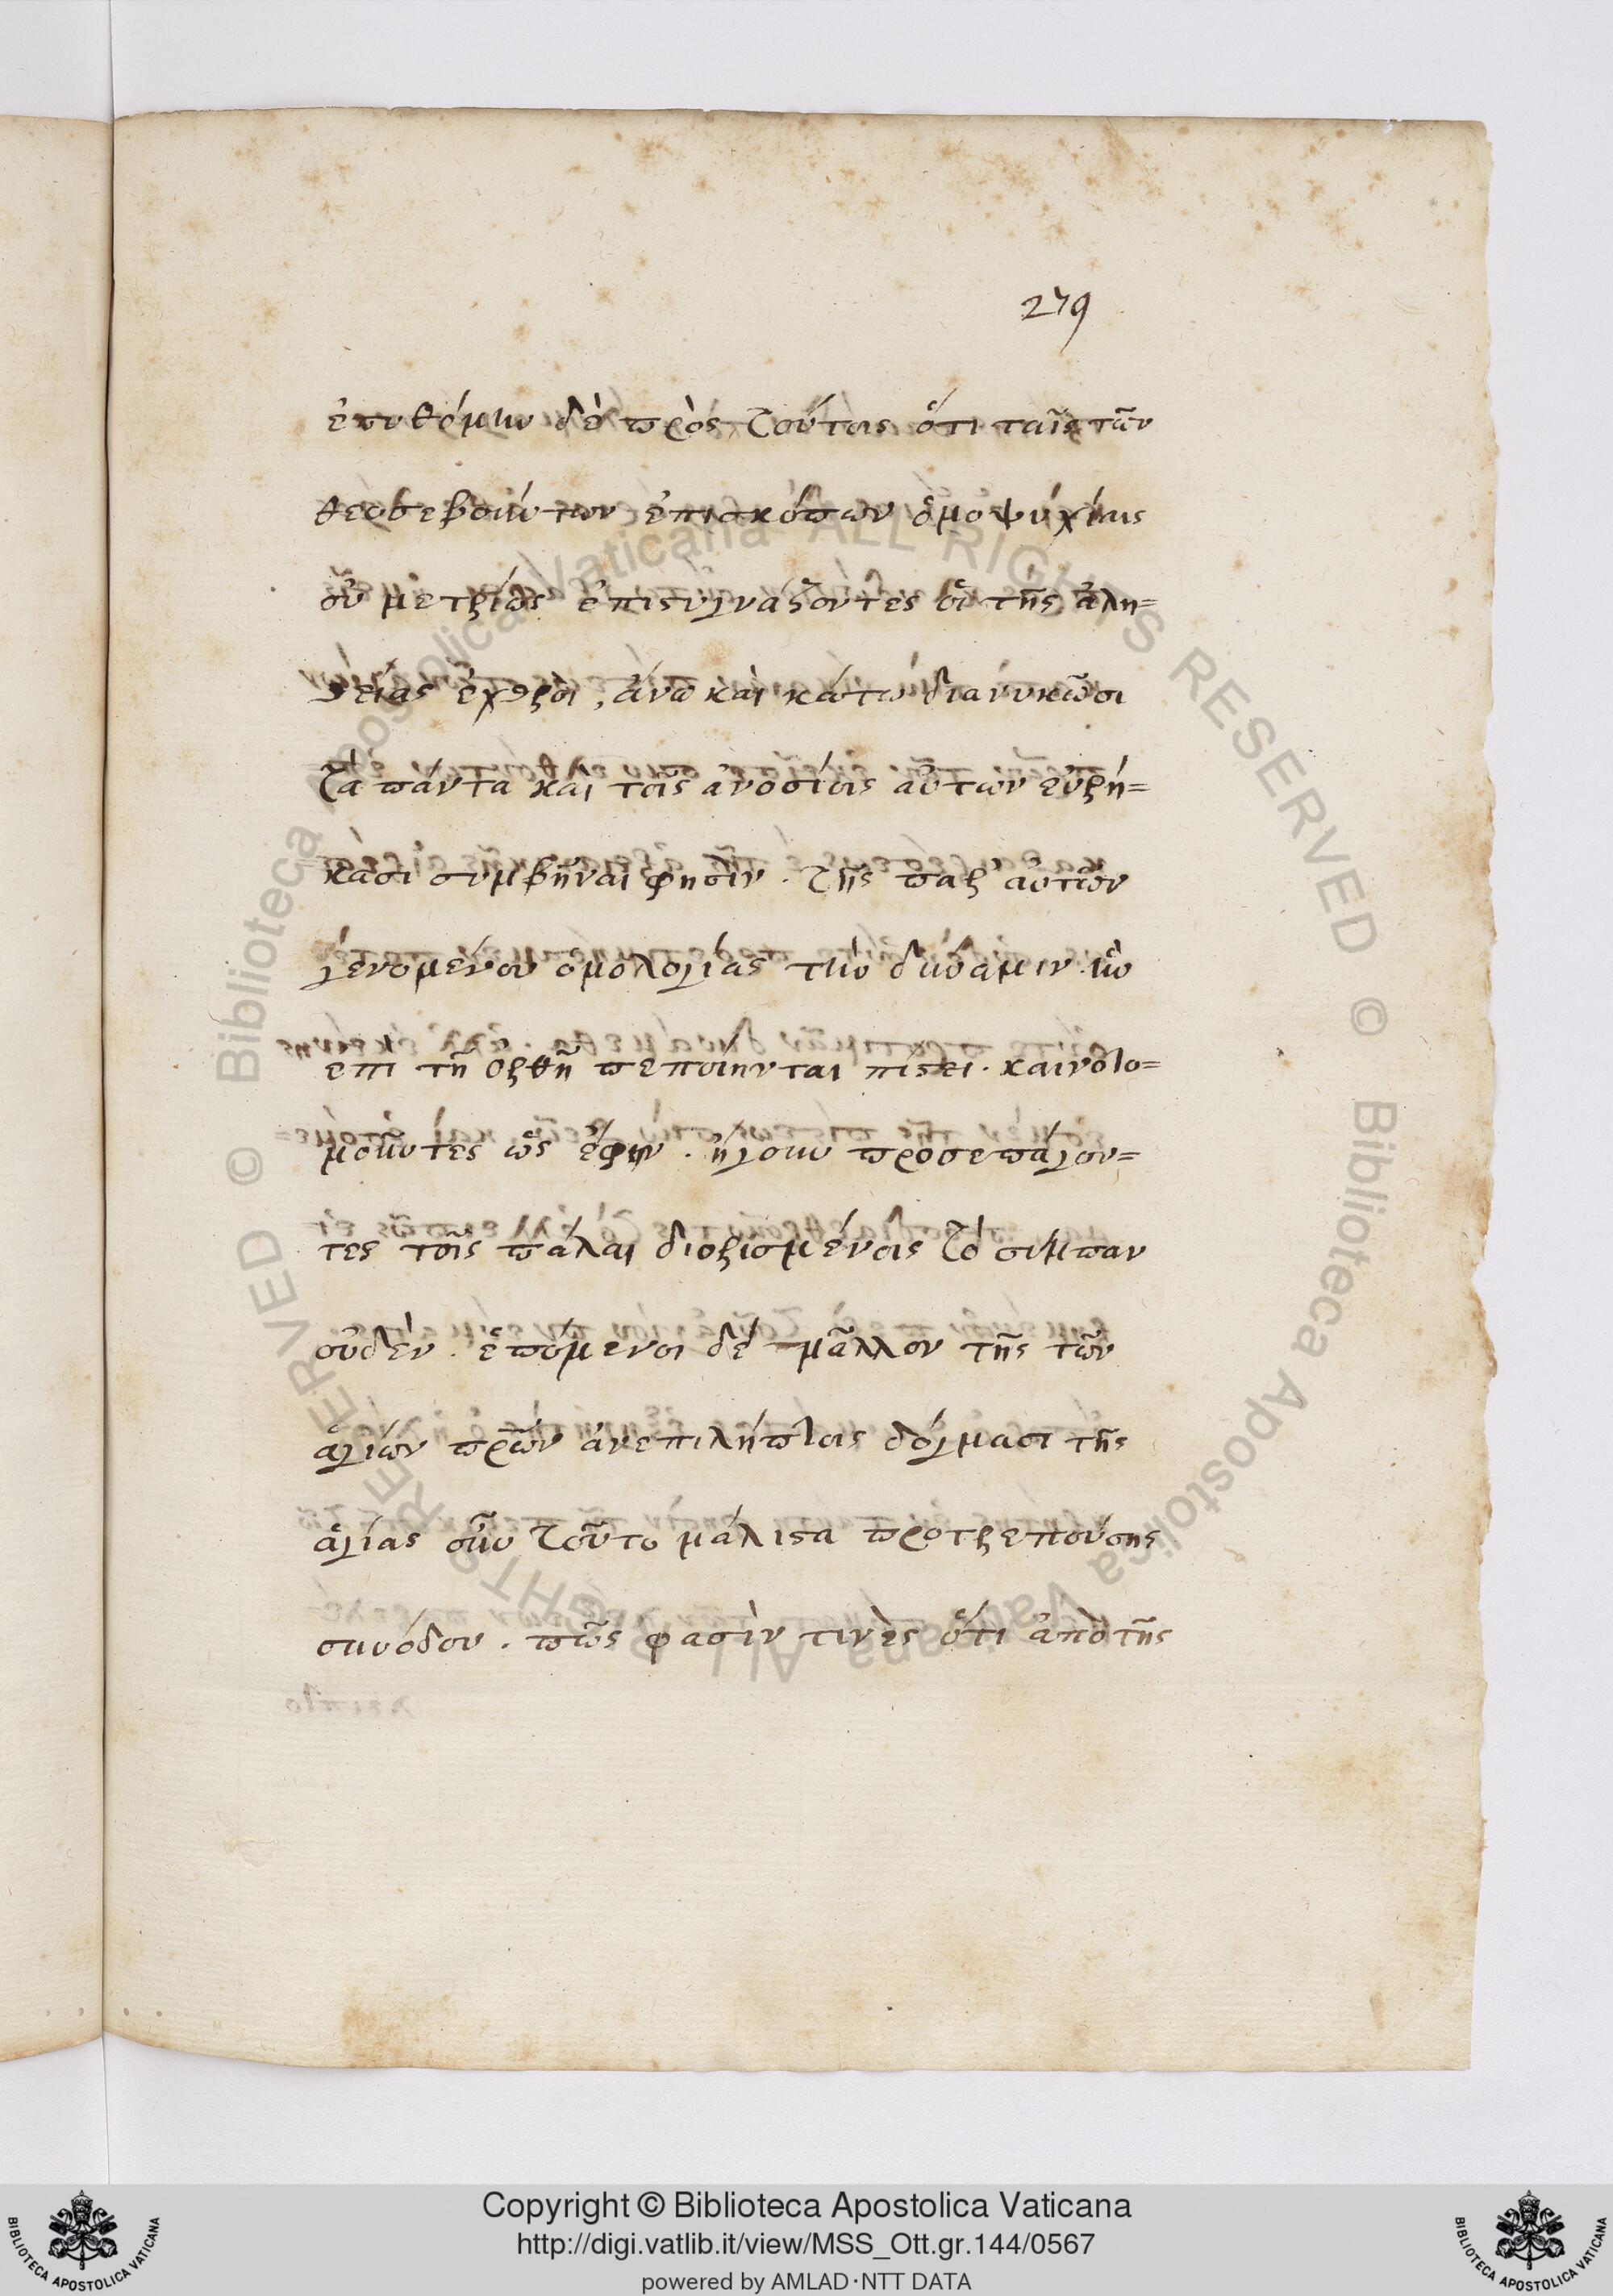 279
ἐπυθόμην δὲ πρὸς τούτοις ὅτι ταῖς τῶν
θεοσεβούντων ἐπισκόπων ὁμοψυχίαις
οὐ μετρίως ἐπιστυγνάζοντες οἱ τῆς ἀλη=
θείας ἐχθροὶ, ἄνω καὶ κάτω διανυκῶσι
τὰ πάντα καὶ τοῖς ἀνοσίοις αὐτων εὑρή=
κασι συμβῆναι φησὶν . τῆς παρ' αὐτῶν
γενομένου ὁμολογίας τὴν δύναμιν . ἣν
επι τῆ ορθῆ πεποίηνται πίστει . καινοτο=
μοῦντες ὡς ἔφην . ἤγουν προσεπάγον=
τες τοῖς πάλαι διορισμένοις τὸ σύμπαν
οὐδὲν . ἑπόμενοι δὲ μᾶλλον τῆς τῶν
ἁγίων πρῶν ἀνεπιλήπτοις δόγμασι τῆς
ἁγίας οὖν τοῦτο μάλιστα προτρεπούσης
συνόδου . πῶς φασὶν τινὲς ὅτι ἀπὸ τῆς
Copyright © Biblioteca Apostolica Vaticana
http://digi.vatlib.it/view/MSS_Ott.gr.144/0567
powered by AMLAD·NTT DATA
BIBLIOTECA APOSTOLICA VATICANA
BIBLIOTECA APOSTOLICA VATICANA
© Biblioteca Apostolica Vaticana ALL RIGHTS RESERVED © Biblioteca Apostolica Vaticana ALL RIGHTS RESERVED